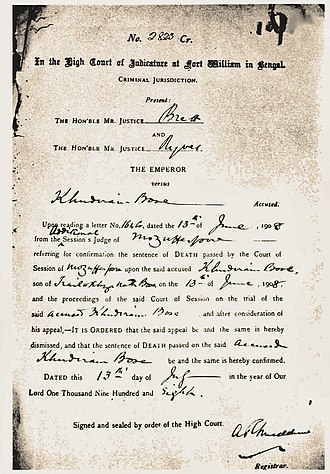 No. 2823 Cr.
In the High Court of Judicature at Fort William in Bengal.
CRIMINAL JURISDICTION.
Present:
THE HON'BLE MR. JUSTICE Brett
AND
THE HON'BLE MR. JUSTICE Ryves
THE EMPEROR
versus
Khudiram Bose Accused.
Upon reading a letter No. 1646, dated the 13th June, 1908
from the Additional Sessions Judge of Mozufferpore
referring for confirmation the sentence of DEATH passed by the Court of
Session of Mozufferpore upon the said accused Khudiram Bose,
son of Trailokhya nath Bose, on the 13th of June, 1908,
and the proceedings of the said Court of Session on the trial of the
said accused Khudiram Bose and after consideration of
his appeal,—IT IS ORDERED that the said appeal be and the same is hereby
dismissed, and that the sentence of DEATH passed on the said accused
Khudiram Bose be and the same is hereby confirmed.
DATED this 13th day of July in the year of Our
Lord One Thousand Nine Hundred and Eighth.
Signed and sealed by order of the High Court.
Registrar.